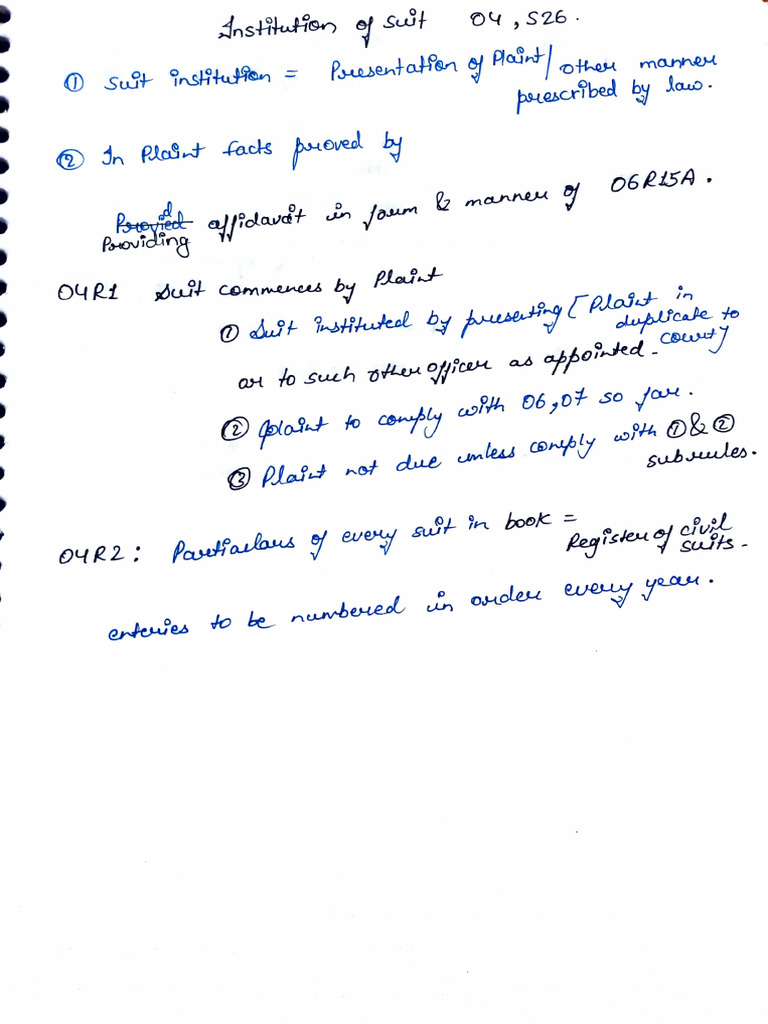 Institution of suit O4, S26.
① Suit institution = Presentation of Plaint/ other manner
prescribed by law.
② In Plaint facts proved by
Providing affidavit in form & manner of O6R15A.
O4R1 Suit commences by Plaint
① Suit instituted by presenting [Plaint in
duplicate to
court]
or to such other officer as appointed.
② plaint to comply with O6, O7 so far.
③ Plaint not due unless comply with ① & ②
subrules.
O4R2: Particulars of every suit in book =
Register of civil
suits.
enteries to be numbered in order every year.